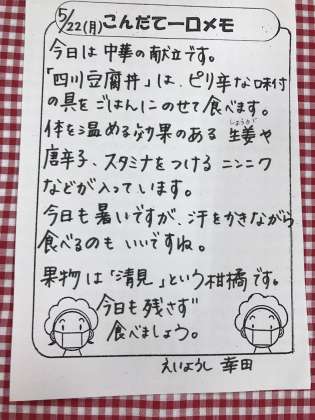 5/22(月)こんだて一口メモ
今日は中華の献立です。
「四川豆腐丼」は、ピリ辛な味付
の具をごはんにのせて食べます。
体を温める効果のある生姜や
しょうが
唐辛子、スタミナをつけるニンニク
などが入っています。
今日も暑いですが、汗をかきながら
食べるのもいいですね。
果物は「清見」という柑橘です。
今日も残さず
食べましょう。
えいようし 幸田